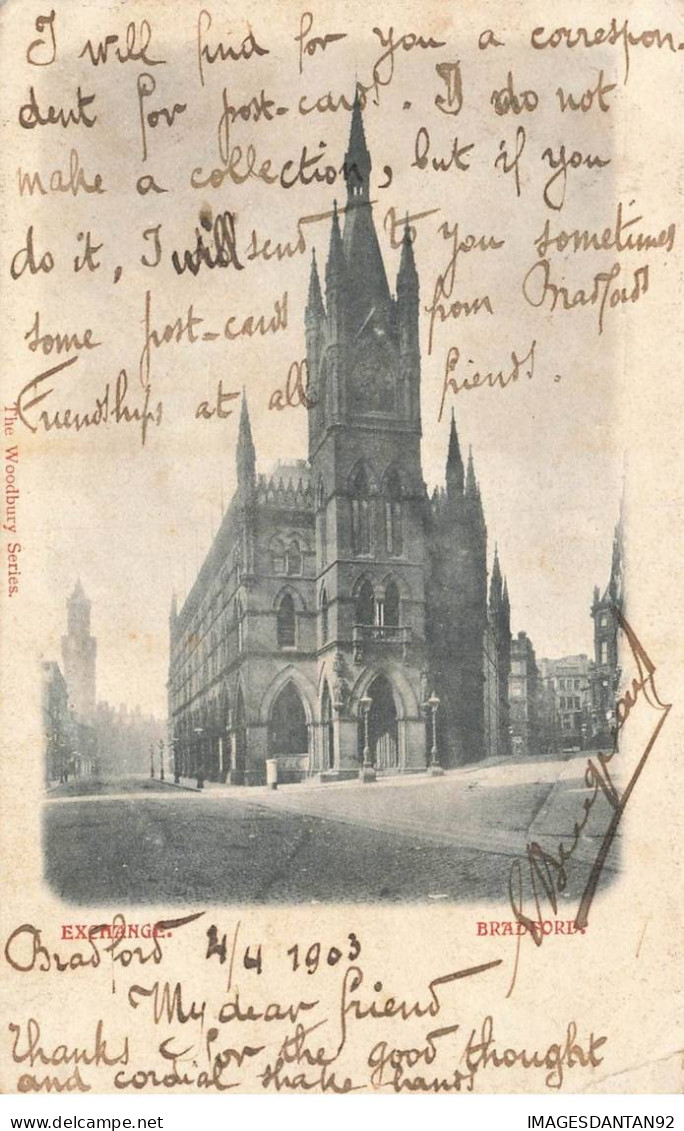 I will find for you a correspon-
dent for post-cards. I do not
make a collection, but if you
do it, I will send to you sometimes
some post-cards from Bradford
Friendships at all friends.
The Woodbury Series.
EXCHANGE.
BRADFORD.
Bradford 2/4 1903
My dear friend
Thanks for the good thought
and cordial shake hands
delcampe.net
IMAGESDANTAN92